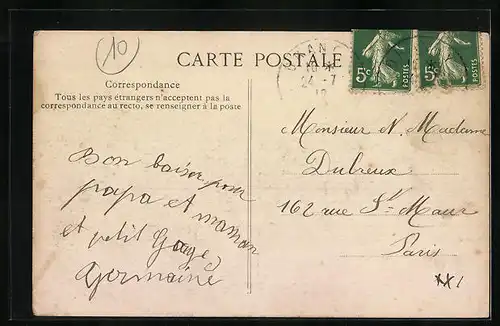 10
CARTE POSTALE
Correspondance
Tous les pays étrangers n'acceptent pas la
correspondance au recto, se renseigner à la poste
5c POSTES
5c POSTES
Bon baiser pour
papa et maman
et petit
Germaine
Monsieur N. Madame
Dubreux
162 rue St Maur
Paris